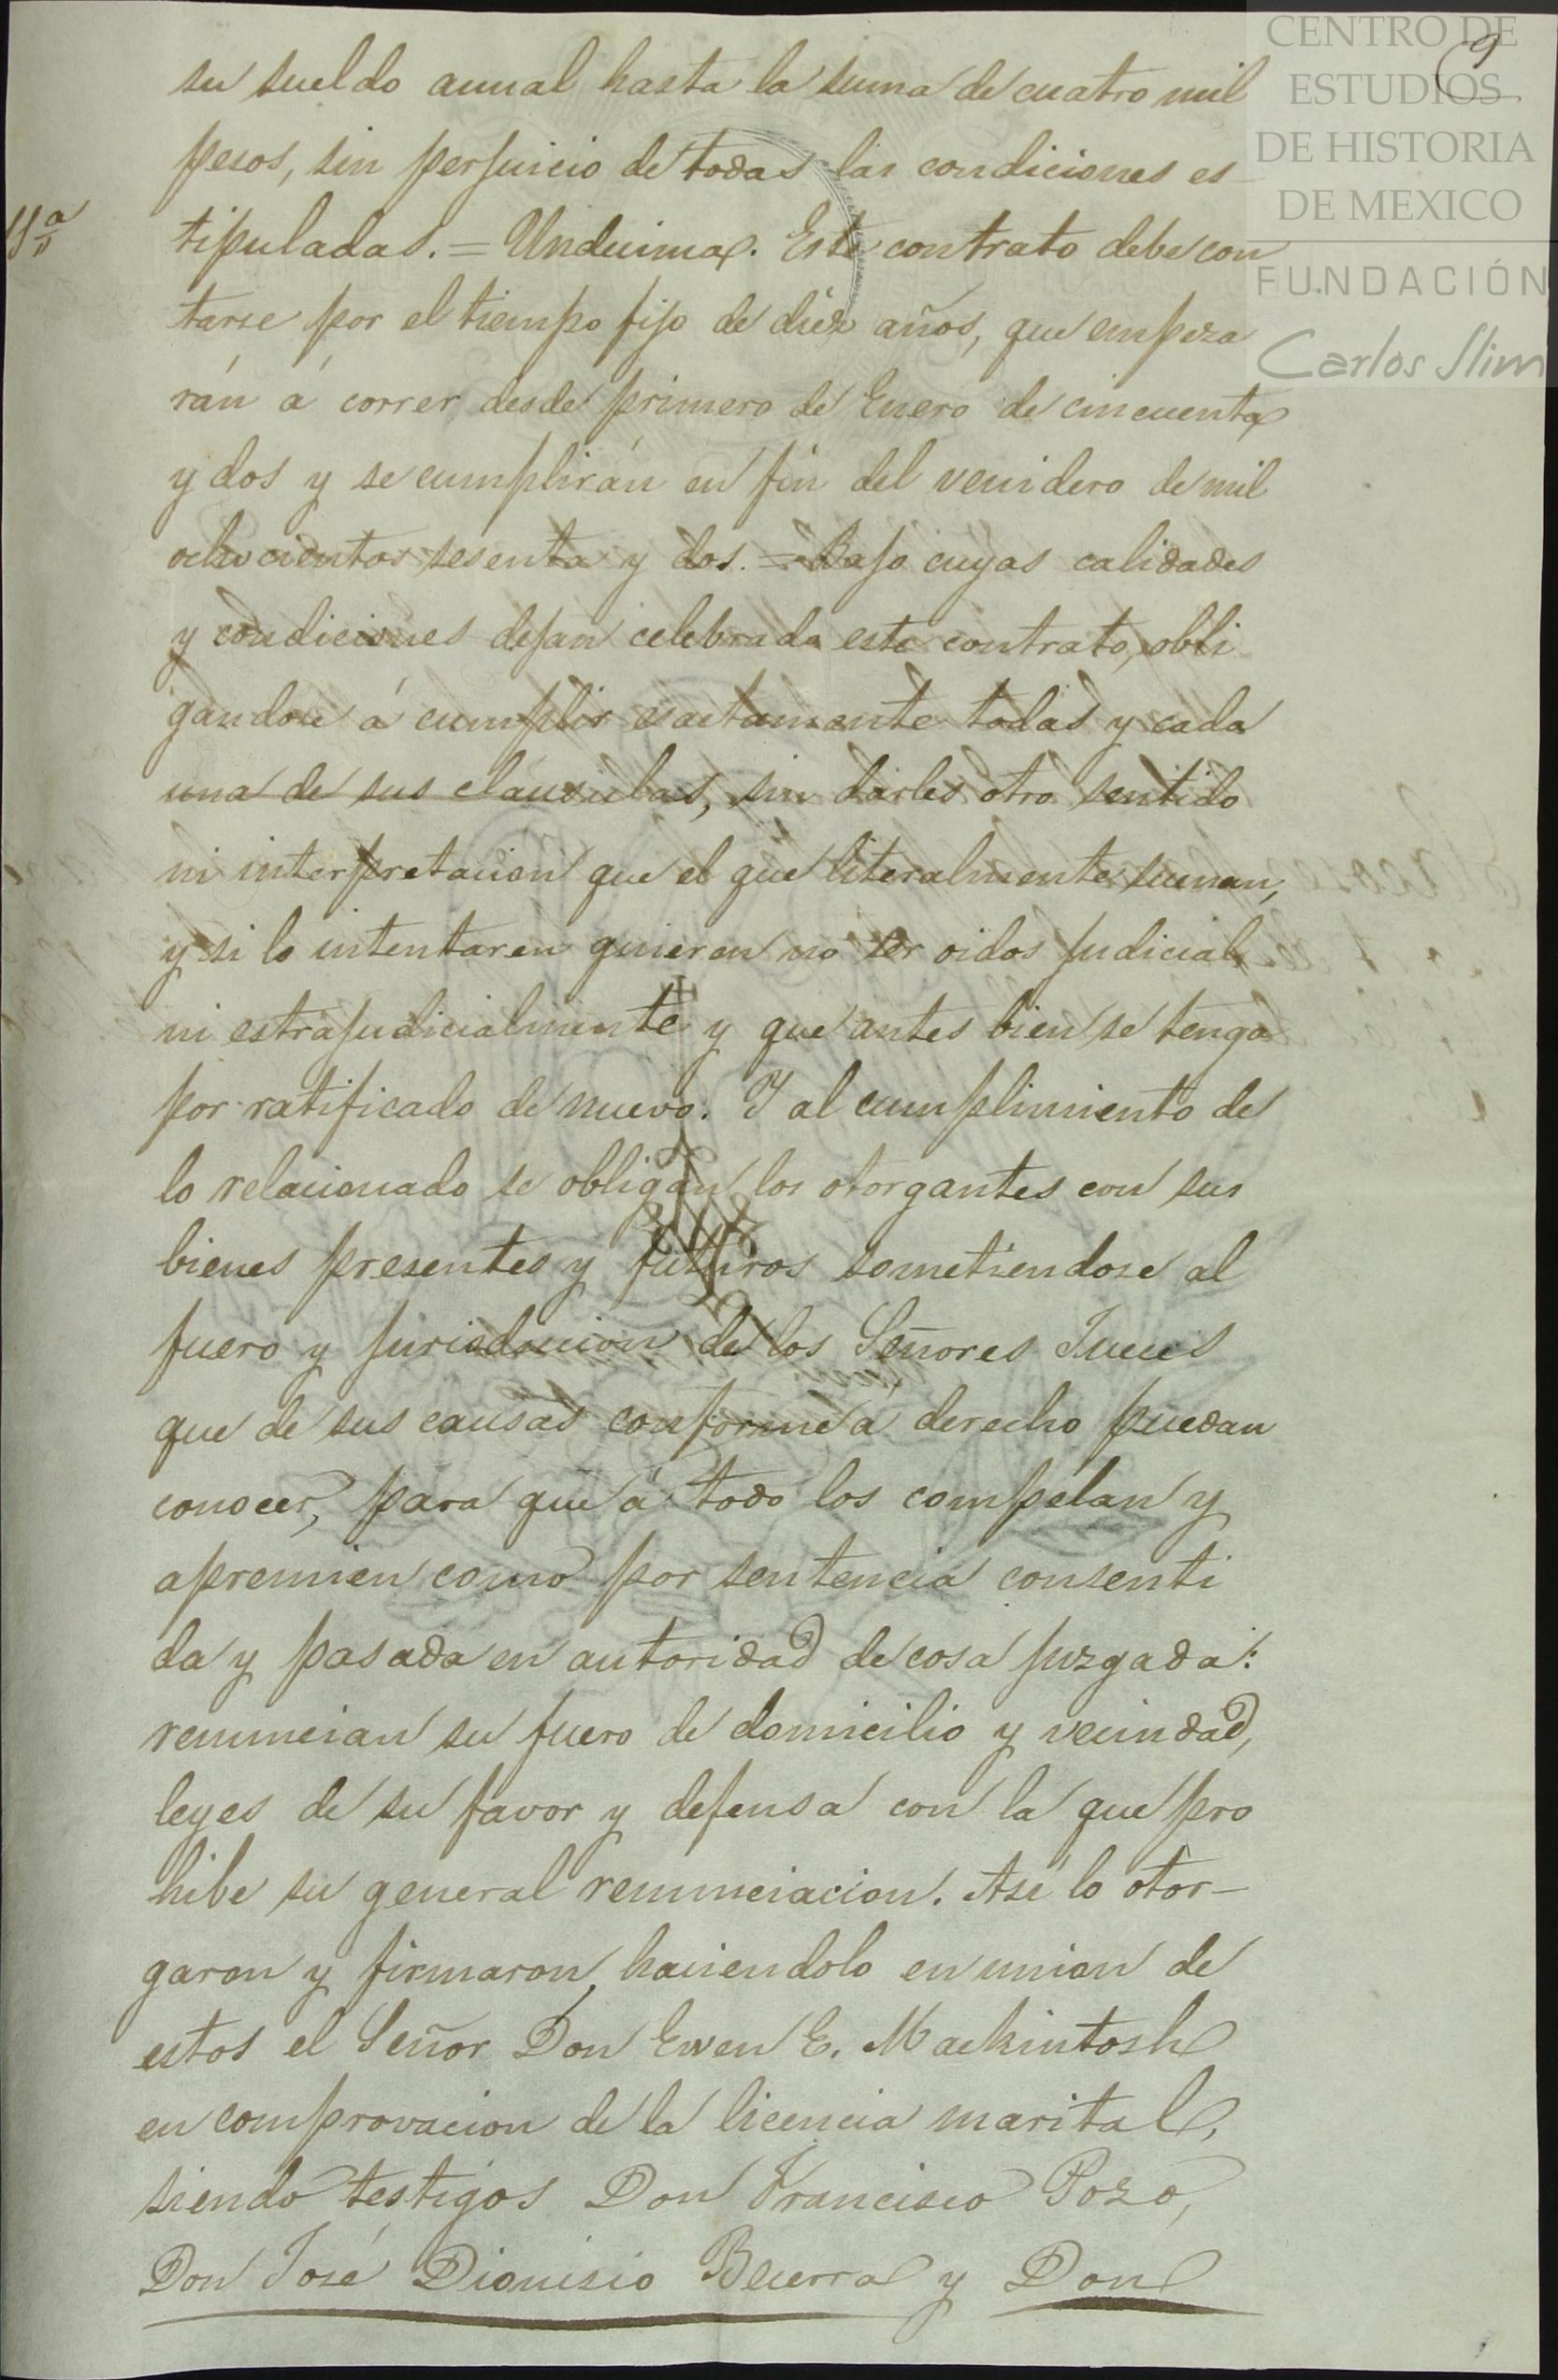 CENTRO DE
ESTUDIOS
DE HISTORIA
DE MEXICO
FUNDACIÓN
Carlos Slim
9
su sueldo anual hasta la suma de cuatro mil
pesos, sin perjuicio de todas las condiciones es-
11ª
tipuladas. = Undecima. Este contrato debe con
tarse por el tiempo fijo de diez años, que empeza
rán á correr desde primero de Enero de cincuenta
y dos y se cumplirán en fin del venidero de mil
ochocientos sesenta y dos. = Bajo cuyas calidades
y condiciones dejan celebrada este contrato, obli
gandose á cumplir esactamente todas y cada
una de sus cláusulas, sin darles otro sentido
ni interpretacion que el que literalmente suenan,
y si lo intentaren quieren no ser oidos judicial
ni estrajudicialmente y que antes bien se tenga
por ratificado de nuevo. Y al cumplimiento de
lo relacionado se obligan los otorgantes con sus
bienes presentes y futuros sometiendose al
fuero y jurisdiccion de los Señores Jueces
que de sus causas conforme á derecho puedan
conocer, para que á todo los compelan y
apremien como por sentencia consenti
da y pasada en autoridad de cosa juzgada:
renuncian su fuero de domicilio y vecindad,
leyes de su favor y defensa con la que pro
hibe su general renunciacion. Asi lo otor-
garon y firmaron, haciendolo en union de
estos el Señor Don Ewen E. Mackintosh
en comprovacion de la licencia marital,
siendo testigos Don Francisco Pozo,
Don José Dionisio Becerra y Don